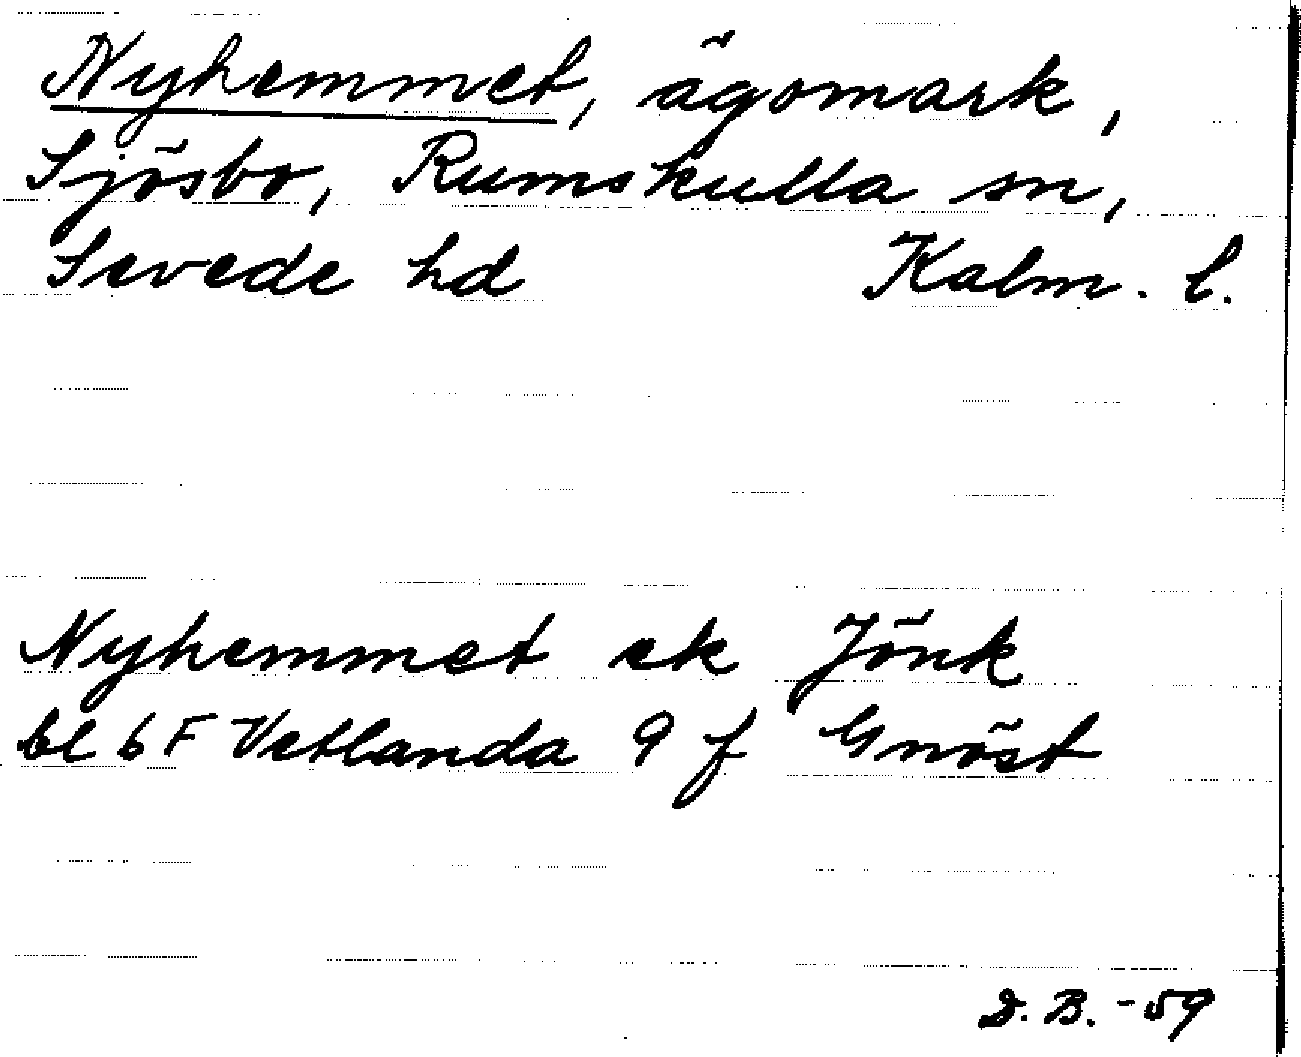 Nyhemmet, ägomark,
Sjösbo, Rumskulla sn,
Sevede hd Kalm. l.
Nyhemmet ek Jönk
bl 6 F Vetlanda 9 f Gnöst
D. B. -59